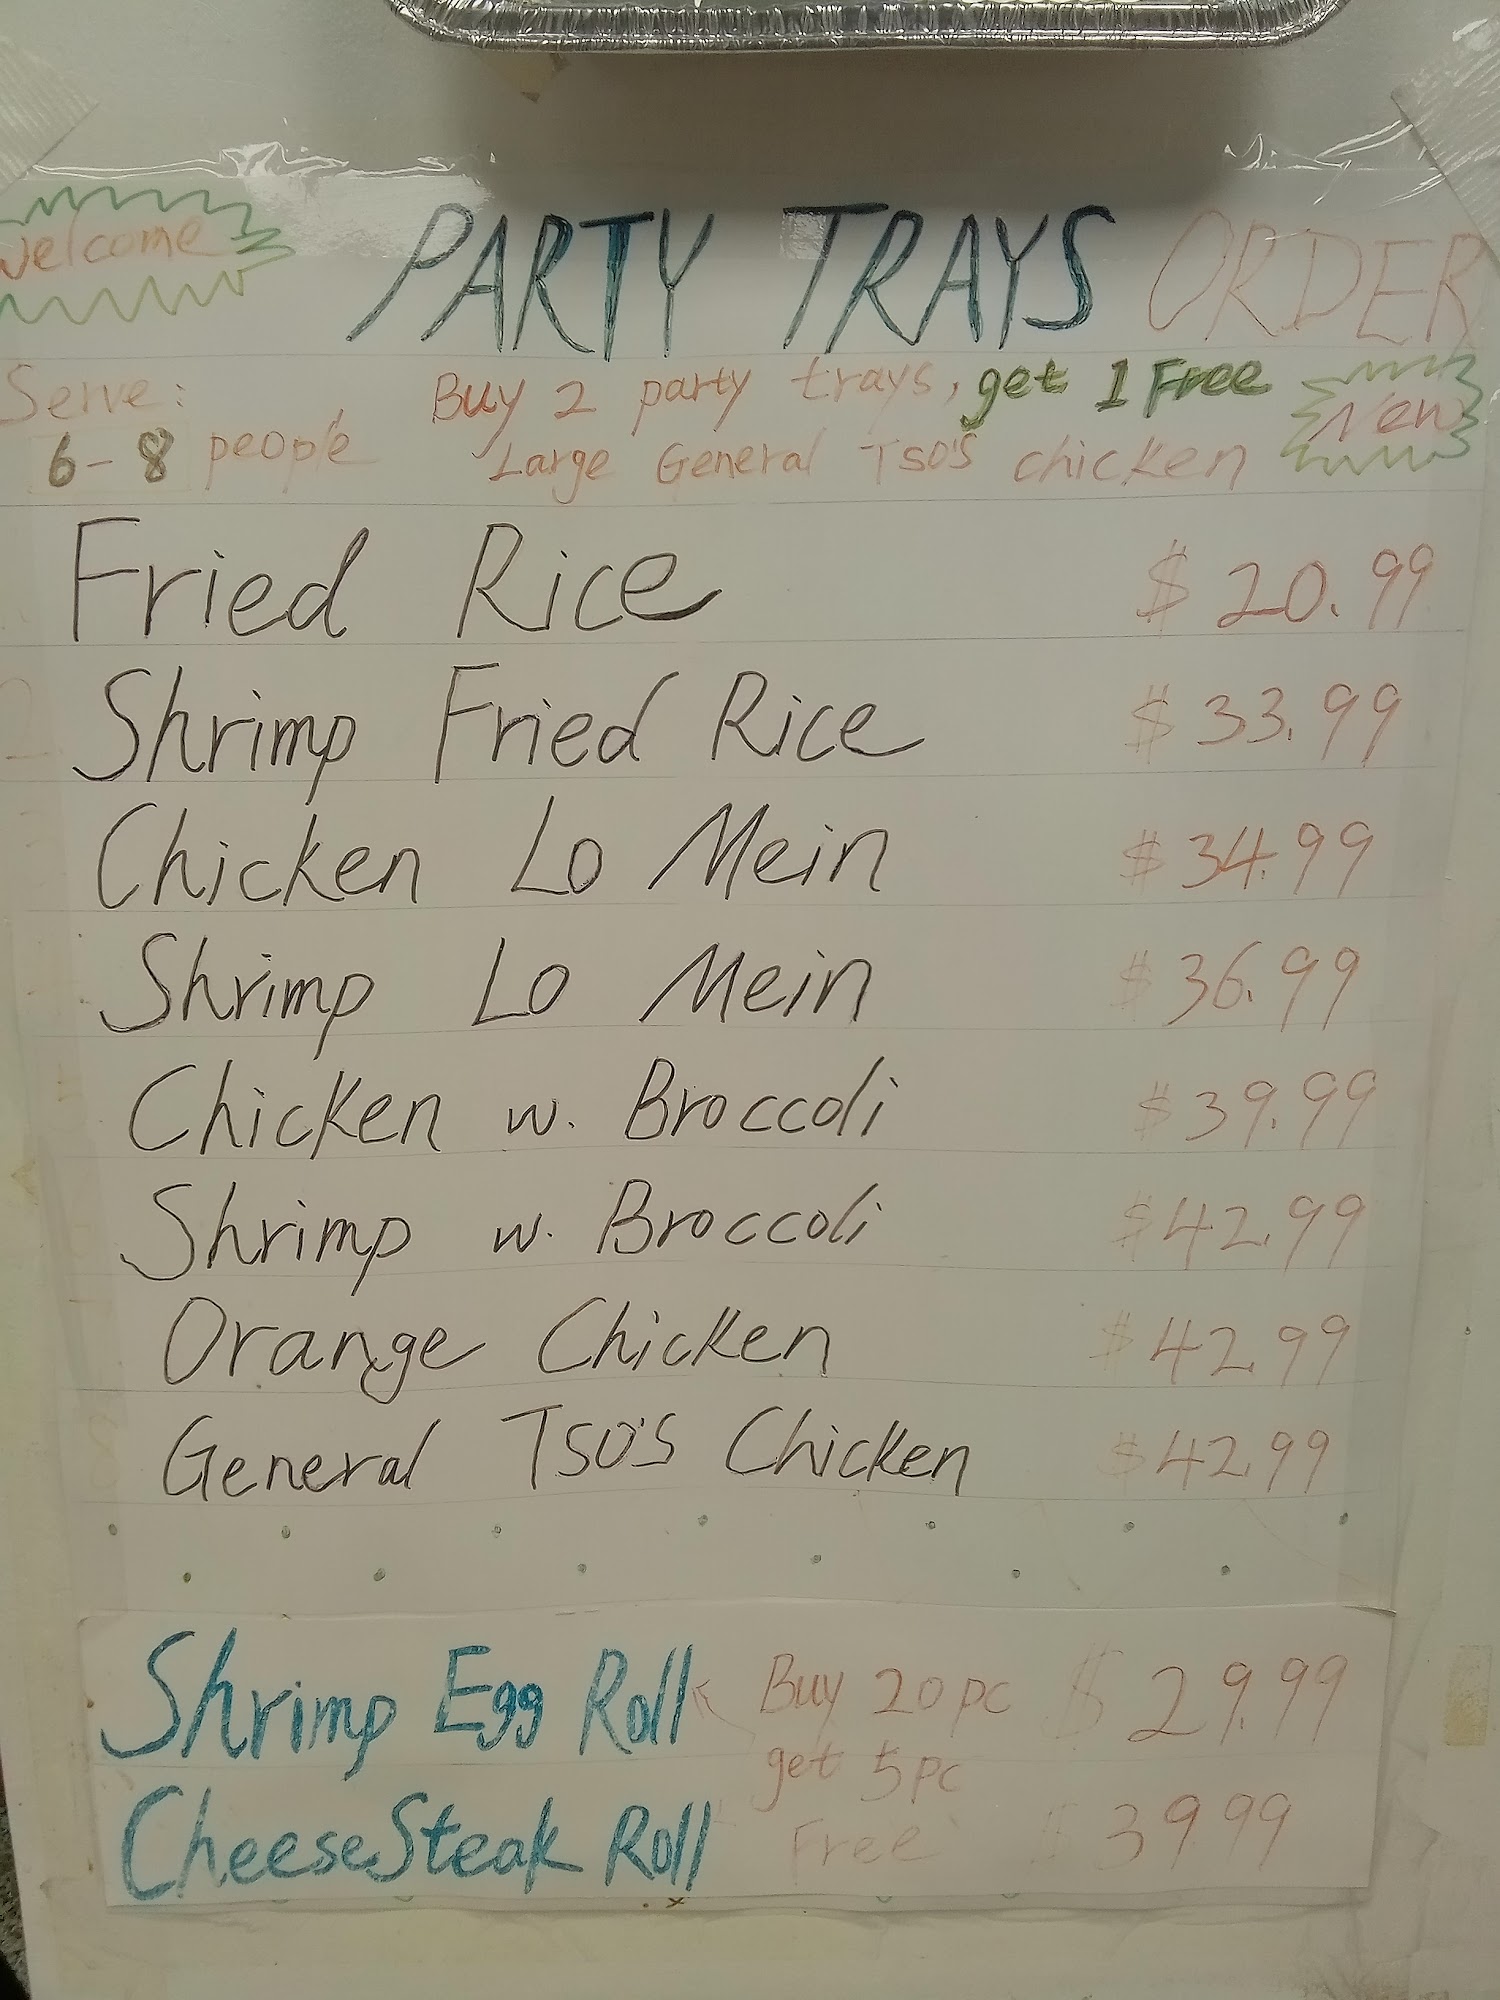 Welcome
PARTY TRAYS ORDER
Serve:
6-8 people
Buy 2 party trays, get 1 Free
Large General TSO'S chicken
New
Fried Rice $20.99
Shrimp Fried Rice $33.99
Chicken Lo Mein $34.99
Shrimp Lo Mein $36.99
Chicken w. Broccoli $39.99
Shrimp w. Broccoli $42.99
Orange Chicken $42.99
General TSO'S Chicken $42.99
Shrimp Egg Roll $29.99
Buy 20 pc
get 5 pc
Free
CheeseSteak Roll $39.99